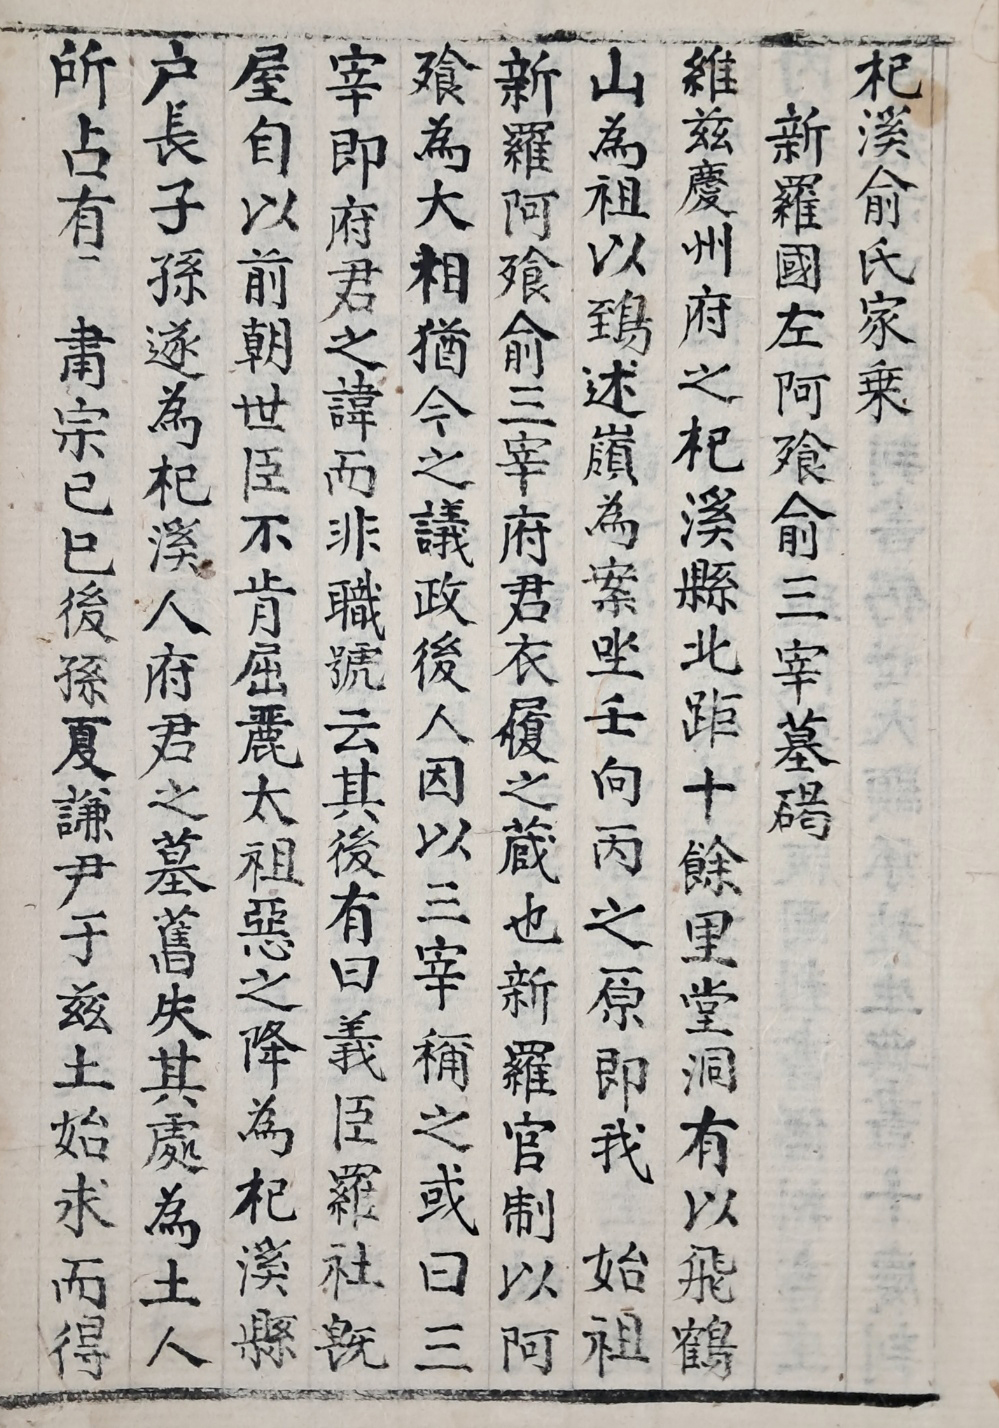 杞溪俞氏家乗
新羅國左阿飱俞三宰墓碣
維兹慶州府之杞溪縣北距十餘里堂洞有以飛鶴
山為祖以鵄述嶺為案坐壬向丙之原即我 始祖
新羅阿飱俞三宰府君衣履之蔵也新羅官制以阿
飱為大相猶今之議政後人因以三宰稱之或曰三
宰即府君之諱而非職號云其後有曰義臣羅社旣
屋自以前朝世臣不肯屈麗太祖惡之降為杞溪縣
户長子孫遂為杞溪人府君之墓舊失其處為土人
所占有 肅宗己巳後孫夏謙尹于兹土始求而得